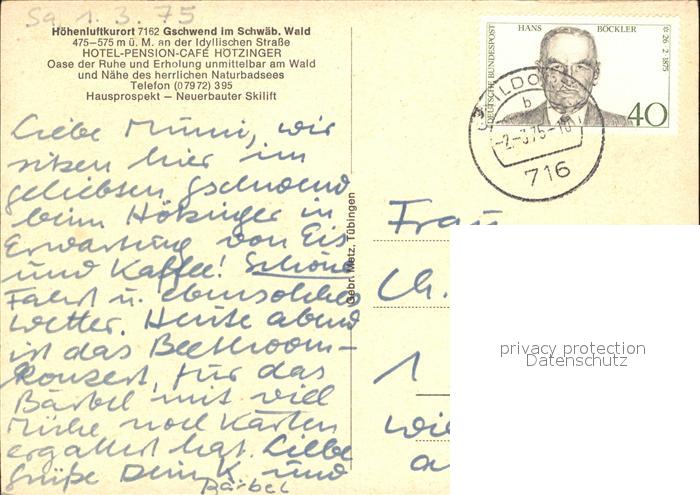 Sa 1. 3. 75
Höhenluftkurort 7162 Gschwend im Schwäb. Wald
475–575 m ü. M. an der Idyllischen Straße
HOTEL-PENSION-CAFÉ HÖTZINGER
Oase der Ruhe und Erholung unmittelbar am Wald
und Nähe des herrlichen Naturbadsees
Telefon (07972) 395
Hausprospekt – Neuerbauter Skilift
Liebe Mumi, wir
sitzen hier im
geliebten Gschwend
beim Hötzinger in
Erwartung von Eis
und Kaffee! Schöne
Fahrt u. ebensolches
Wetter. Heute abend
ist das Beethoven-
konzert, für das
Bärbel mit viel
Mühe noch Karten
ergattert hat. Liebe
Grüße Dein K und
Bärbel
Gebr. Metz, Tübingen
HANS BÖCKLER
DEUTSCHE BUNDESPOST
* 26. 2. 1875
40
b
-2.-3.75-10
716
Frau
Ch.
1
privacy protection
Datenschutz